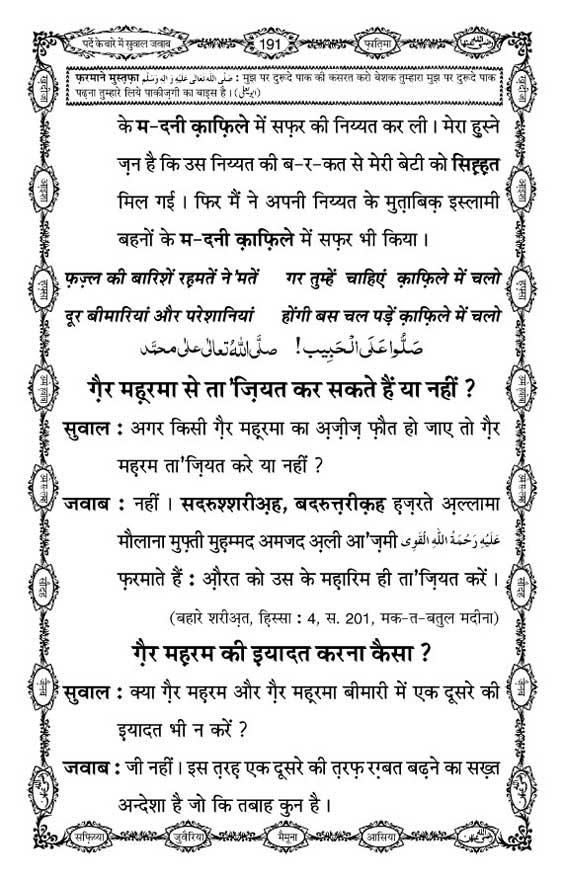 पर्दे के बारे में सुवाल जवाब 191 फ़ातिमा
फ़रमाने मुस्त़फ़ा صلى الله تعالى عليه واله وسلم : मुझ पर दुरूदे पाक की कसरत करो बेशक तुम्हारा मुझ पर दुरूदे पाक
पढ़ना तुम्हारे लिये पाकीज़गी का बाइस है । (ابو يعلى)
के म-दनी क़ाफ़िले में सफ़र की निय्यत कर ली । मेरा हुस्ने
ज़न है कि उस निय्यत की ब-र-कत से मेरी बेटी को सिह़्ह़त
मिल गई । फिर मैं ने अपनी निय्यत के मुत़ाबिक़ इस्लामी
बहनों के म-दनी क़ाफ़िले में सफ़र भी किया ।
फ़ज़्ल की बारिशें रह़मतें ने'मतें गर तुम्हें चाहिएं क़ाफ़िले में चलो
दूर बीमारियां और परेशानियां होंगी बस चल पड़ें क़ाफ़िले में चलो
صَلُّوا عَلَى الْحَبِيب! صلَّى اللهُ تعالى على محمَّد
ग़ैर मह़रमा से ता'ज़ियत कर सकते हैं या नहीं ?
सुवाल : अगर किसी ग़ैर मह़रमा का अ़ज़ीज़ फ़ौत हो जाए तो ग़ैर
मह़रम ता'ज़ियत करे या नहीं ?
जवाब : नहीं । सदरुश्शरीअ़ह, बदरुत़्त़रीक़ह ह़ज़रते अ़ल्लामा
मौलाना मुफ़्ती मुह़म्मद अमजद अ़ली आ'ज़मी عَلَيْهِ رَحْمَةُ اللهِ الْقَوِى
फ़रमाते हैं : औ़रत को उस के मह़ारिम ही ता'ज़ियत करें ।
(बहारे शरीअ़त, ह़िस्सा : 4, स. 201, मक-त-बतुल मदीना)
ग़ैर मह़रम की इयादत करना कैसा ?
सुवाल : क्या ग़ैर मह़रम और ग़ैर मह़रमा बीमारी में एक दूसरे की
इयादत भी न करें ?
जवाब : जी नहीं । इस त़रह़ एक दूसरे की त़रफ़ रग़्बत बढ़ने का सख़्त
अन्देशा है जो कि तबाह कुन है ।
सफ़िय्या जुवैरिया मैमूना आसिया